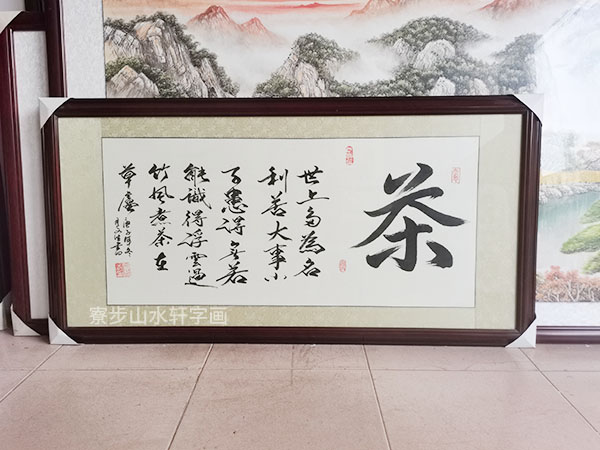 茶
世上多為名
利苦大事小
事患得失若
能識得浮雲過
竹風煮茶在
草廬
寮步山水轩字画